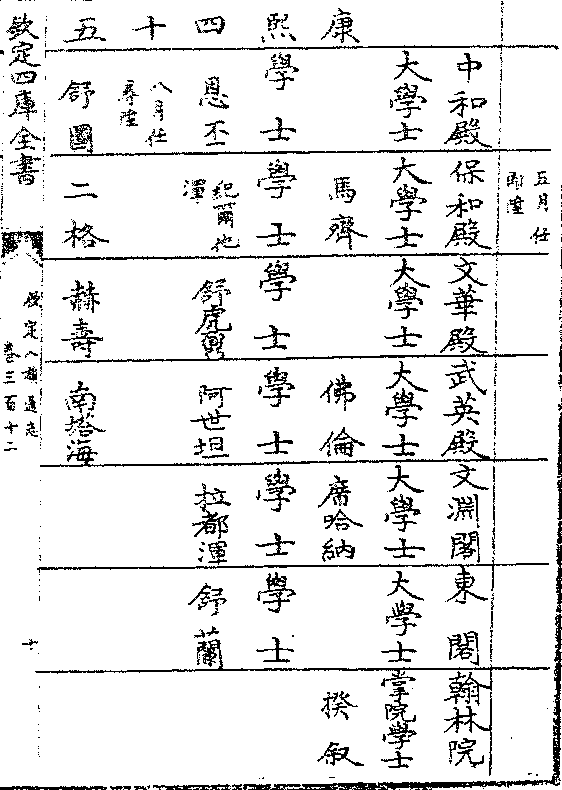 五月任
即陞
康熙四十五
中和殿 保和殿 文華殿 武英殿 文淵閣 東閣 翰林院
大學士 大學士 大學士 大學士 大學士 大學士 掌院學士
馬齊 佛倫 席哈納 揆叙
學士 學士 學士 學士 學士 學士
恩丕 紀爾他渾 舒虎 阿世坦 拉都渾 舒蘭
八月任
尋陞
舒圖 二格 赫壽 南塔海
欽定四庫全書
欽定八旗通志
卷三百十二
十